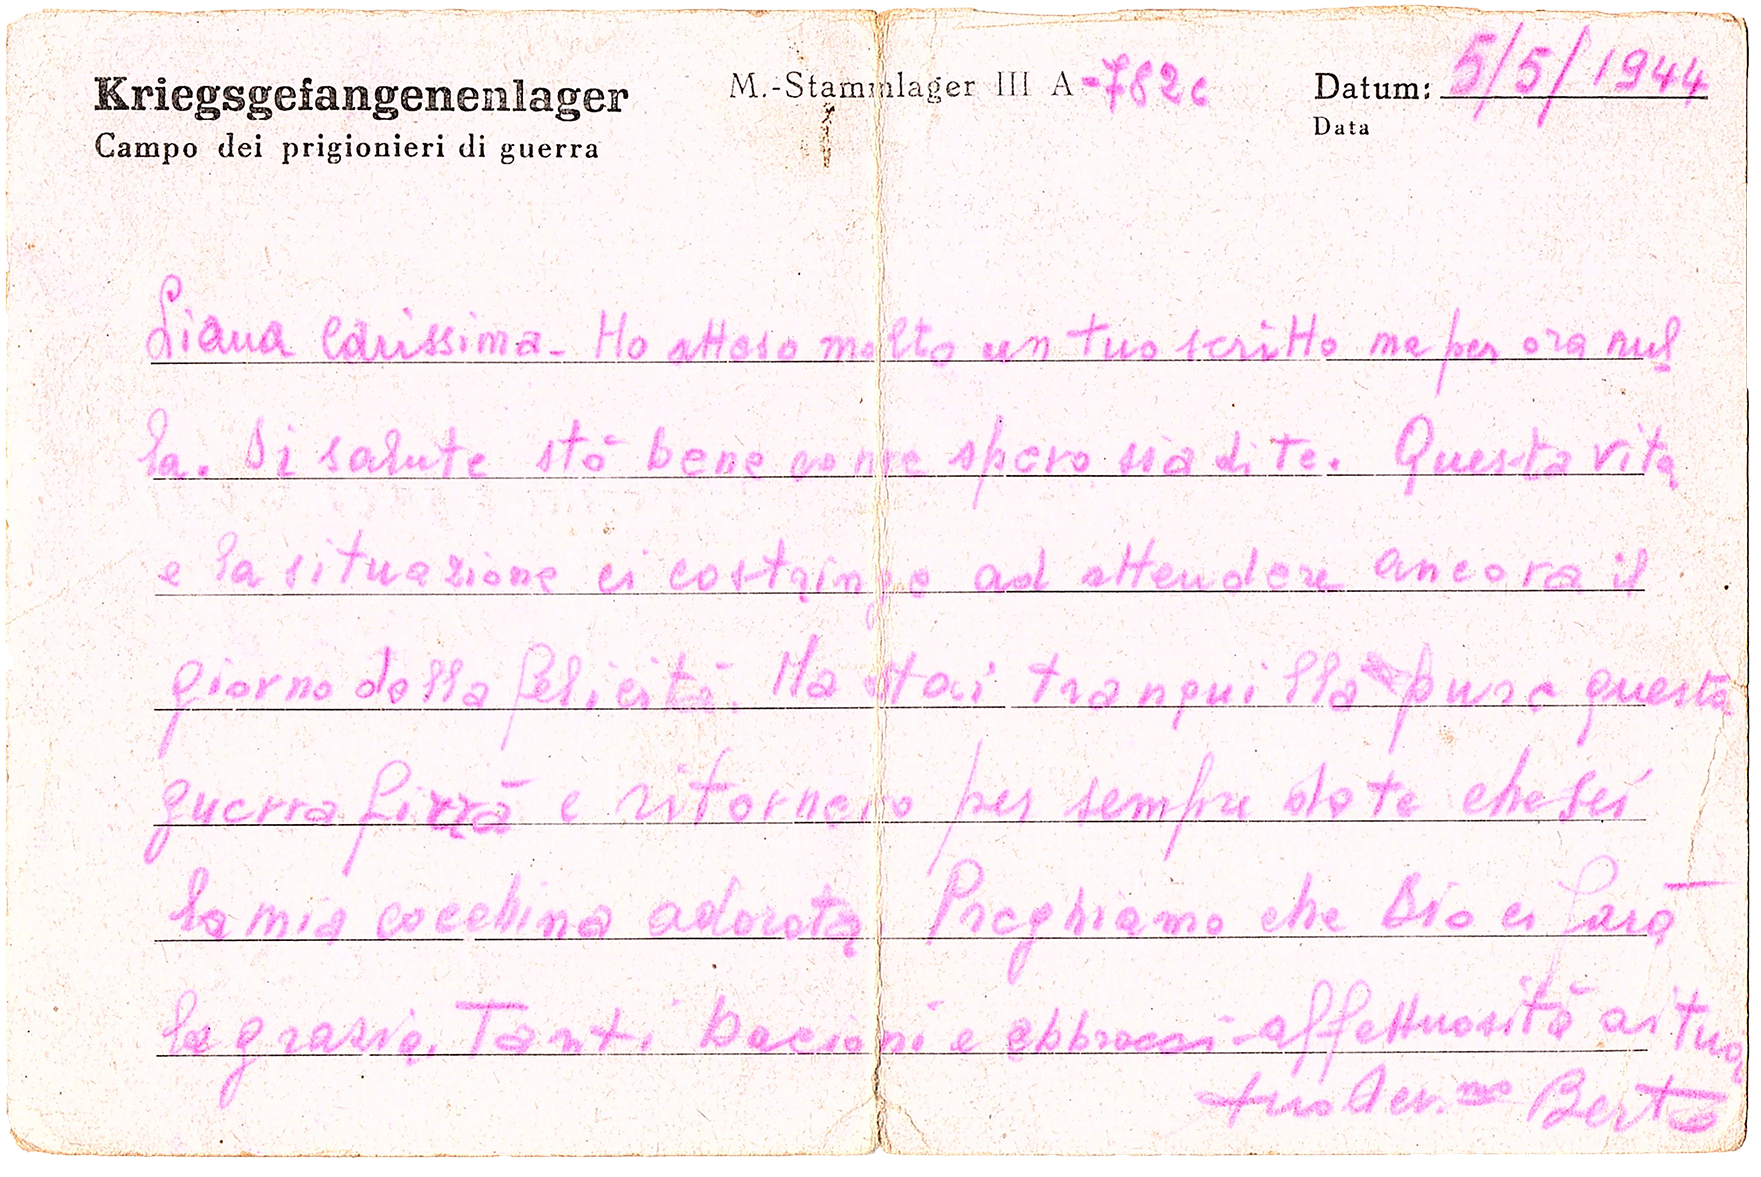 Kriegsgefangenenlager M.-Stammlager III A -782c Datum: 5/5/1944
Campo dei prigionieri di guerra Data
Liana carissima - Ho atteso molto un tuo scritto ma per ora nul
la. Di salute stò bene come spero sia di te. Questa vita
e la situazione ci costringe ad attendere ancora il
giorno della felicità. Ma stai tranquilla pure questa
guerra firrà e ritornero per sempre da te che sei
la mia cocchina adorata Preghiamo che Dio ci farà
la grazia. Tanti bacioni e abbracci affettuosità ai tuoi
tuo Aev.mo Berto